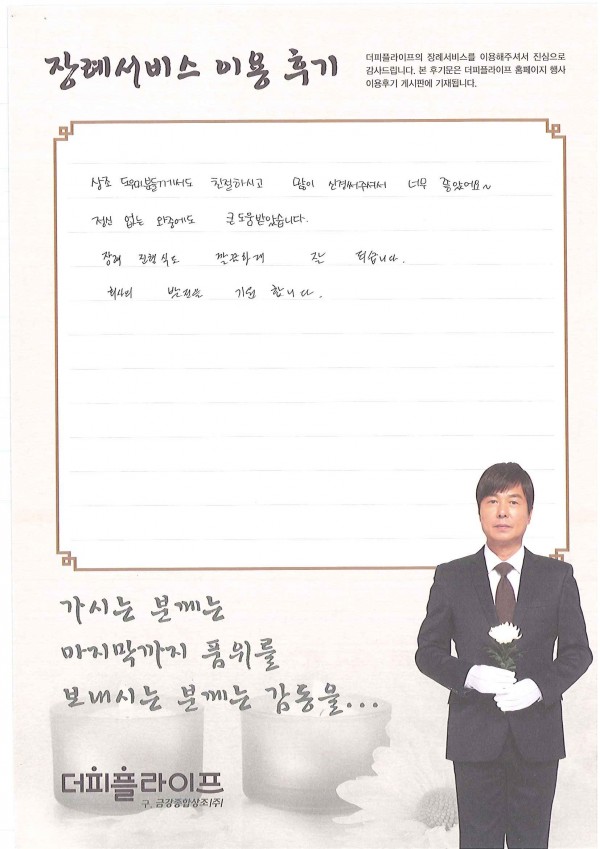 장례서비스 이용 후기
더피플라이프의 장례서비스를 이용해주셔서 진심으로
감사드립니다. 본 후기문은 더피플라이프 홈페이지 행사
이용후기 게시판에 기재됩니다.
상조 도우미분들께서도 친절하시고 많이 신경써주셔서 너무 좋았어요~
정신 없는 와중에도 큰 도움 받았습니다.
장례 진행식도 깔끔하게 잘 되습니다.
회사의 발전을 기원 합니다.
가시는 분께는
마지막까지 품위를
보내시는 분께는 감동을...
더피플라이프
구. 금강종합상조(주)